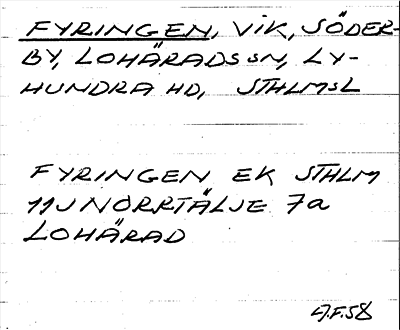 FYRINGEN, VIK, SÖDER-
BY, LOHÄRADS SN, LY-
HUNDRA HD, STHLMSL
FYRINGEN EK STHLM
11J NORRTÄLJE 7a
LOHÄRAD